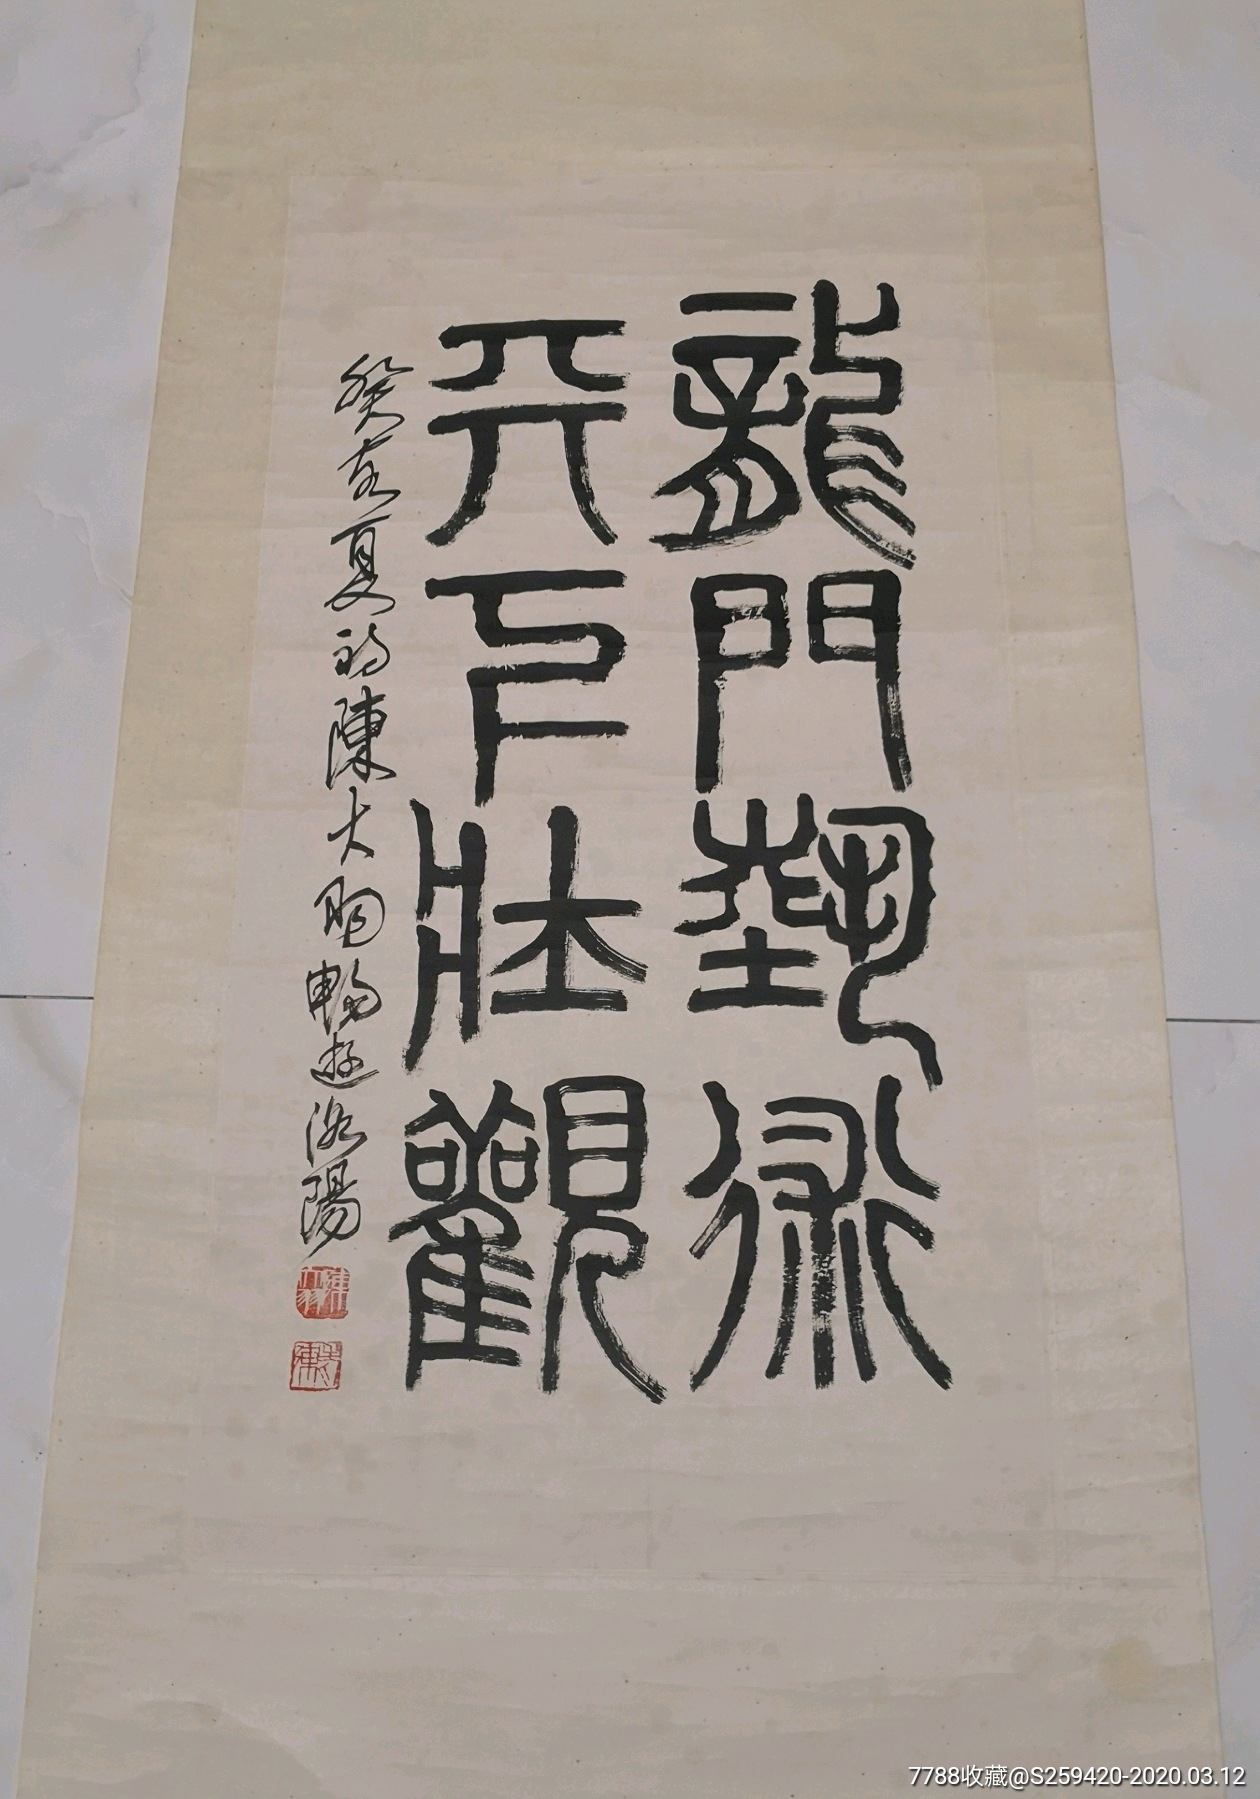 龍門藝術
天下壯觀
癸亥夏初陳大羽暢遊洛陽
7788收藏@S259420-2020.03.12